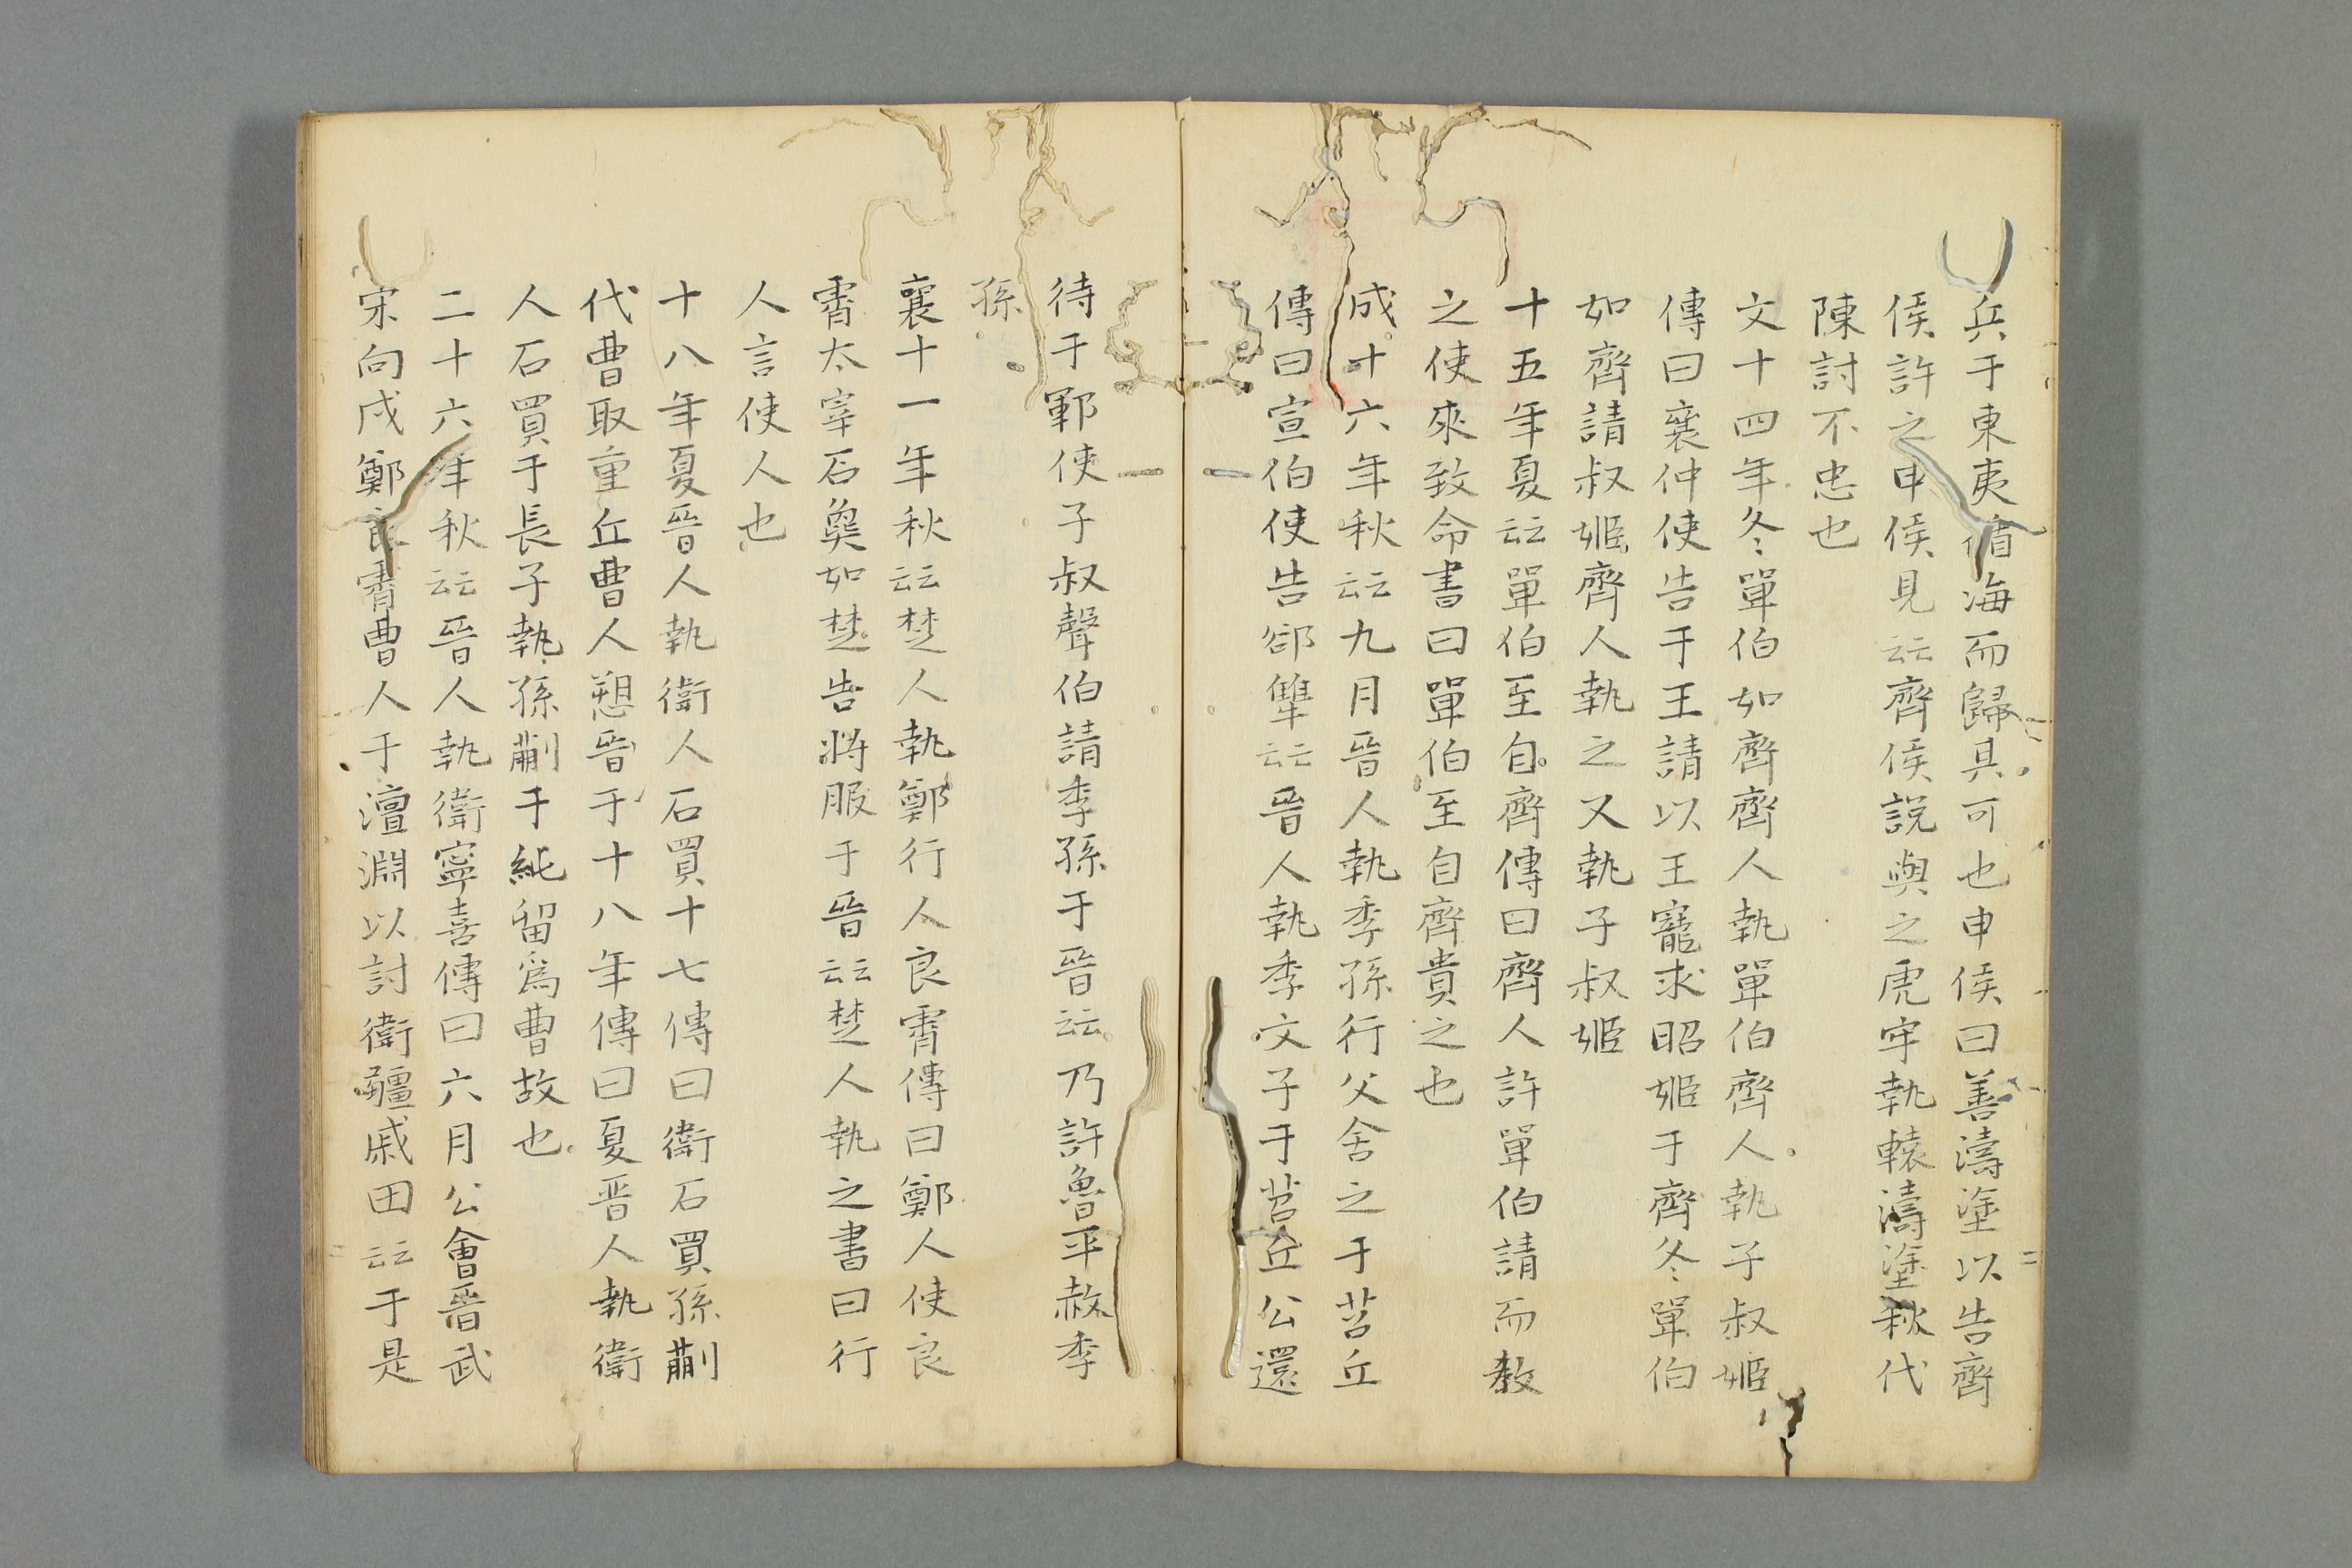 兵于東夷循海而歸其可也申侯曰善濤塗以告齊
侯許之申侯見云云齊侯説與之虎牢執轅濤塗秋伐
陳討不忠也
文十四年冬單伯如齊齊人執單伯齊人執子叔姬
傳曰襄仲使告于王請以王寵求昭姬于齊冬單伯
如齊請叔姬齊人執之又執子叔姬
十五年夏云云單伯至自齊傳曰齊人許單伯請而赦
之使來致命書曰單伯至自齊貴之也
成十六年秋云云九月晉人執季孫行父舍之于苕丘
傳曰宣伯使告郤犨云云晉人執季文子于苕丘公還
待于鄆使子叔聲伯請季孫于晉云云乃許魯平赦季
孫
襄十一年秋云云楚人執鄭行人良霄傳曰鄭人使良
霄太宰石㚟如楚告將服于晉云云楚人執之書曰行
人言使人也
十八年夏晉人執衛行人石買十七傳曰衛石買孫蒯
伐曹取重丘曹人愬晉于十八年傳曰夏晉人執衛
人石買于長子執孫蒯于純留爲曹故也
二十六年秋云云晉人執衛寧喜傳曰六月公會晉武
宋向戌鄭良霄曹人于澶淵以討衛疆戚田云云于是